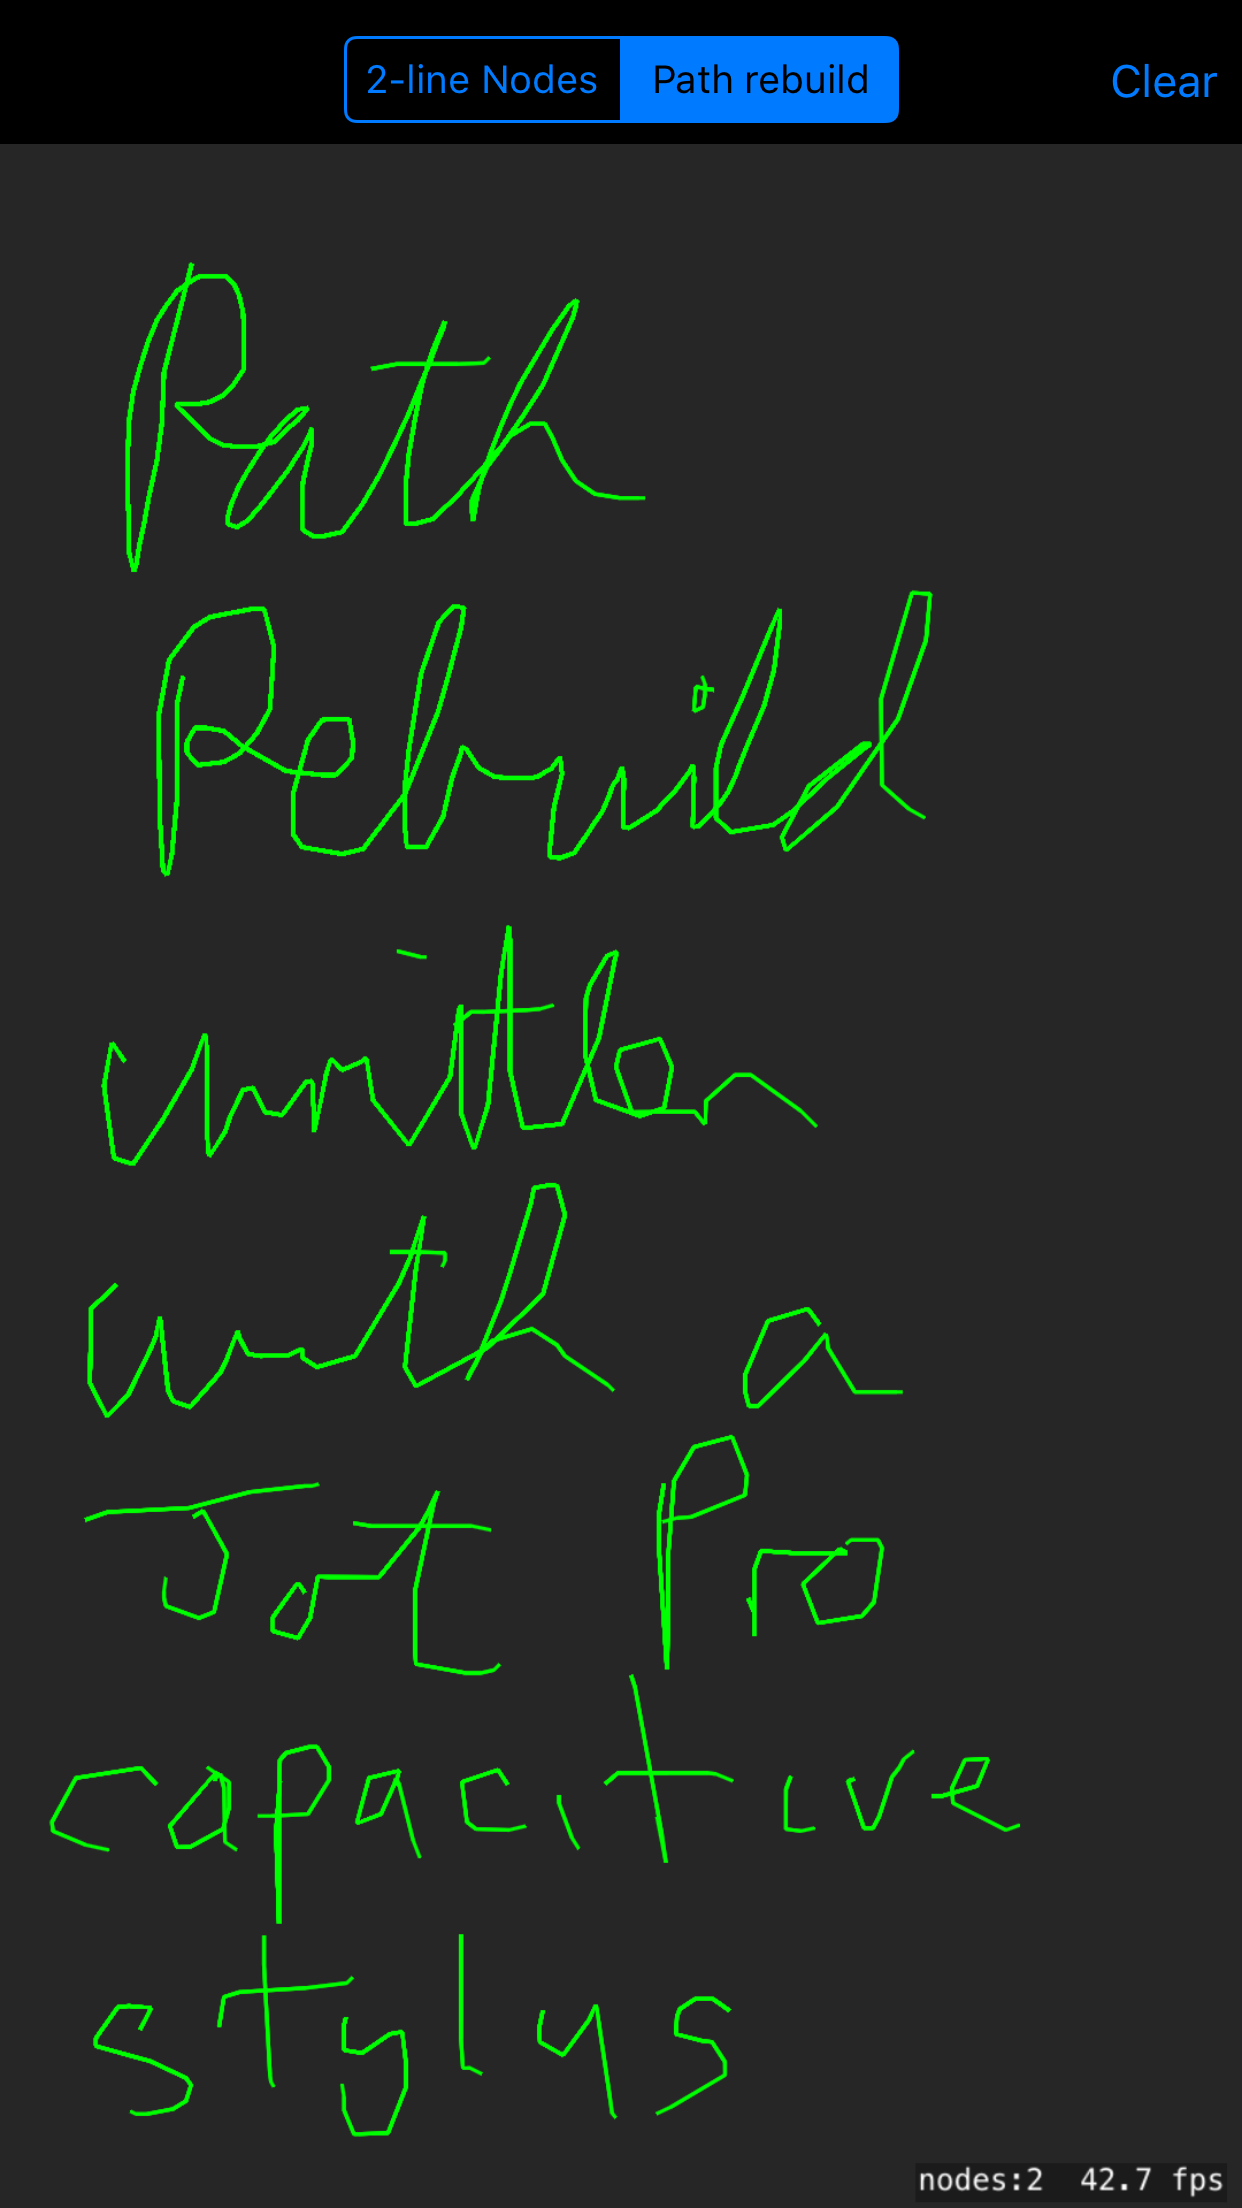 2-line Nodes Path rebuild Clear
Path
Rebuild
written
with a
Jot Pro
capacitive
stylus
nodes:2 42.7 fps